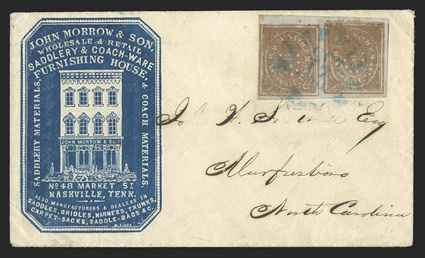 JOHN MORROW & SON,
WHOLESALE & RETAIL
SADDLERY & COACH-WARE
FURNISHING HOUSE,
SADDLERY MATERIALS,
& COACH MATERIALS,
JOHN MORROW & SON
No 48 MARKET ST
NASHVILLE, TENN.
ALSO MANUFACTURERS & DEALERS
SADDLES, BRIDLES, HARNESS, TRUNKS,
CARPET-SACKS, SADDLE-BAGS &C.
Esq
Murfresboro
North Carolina